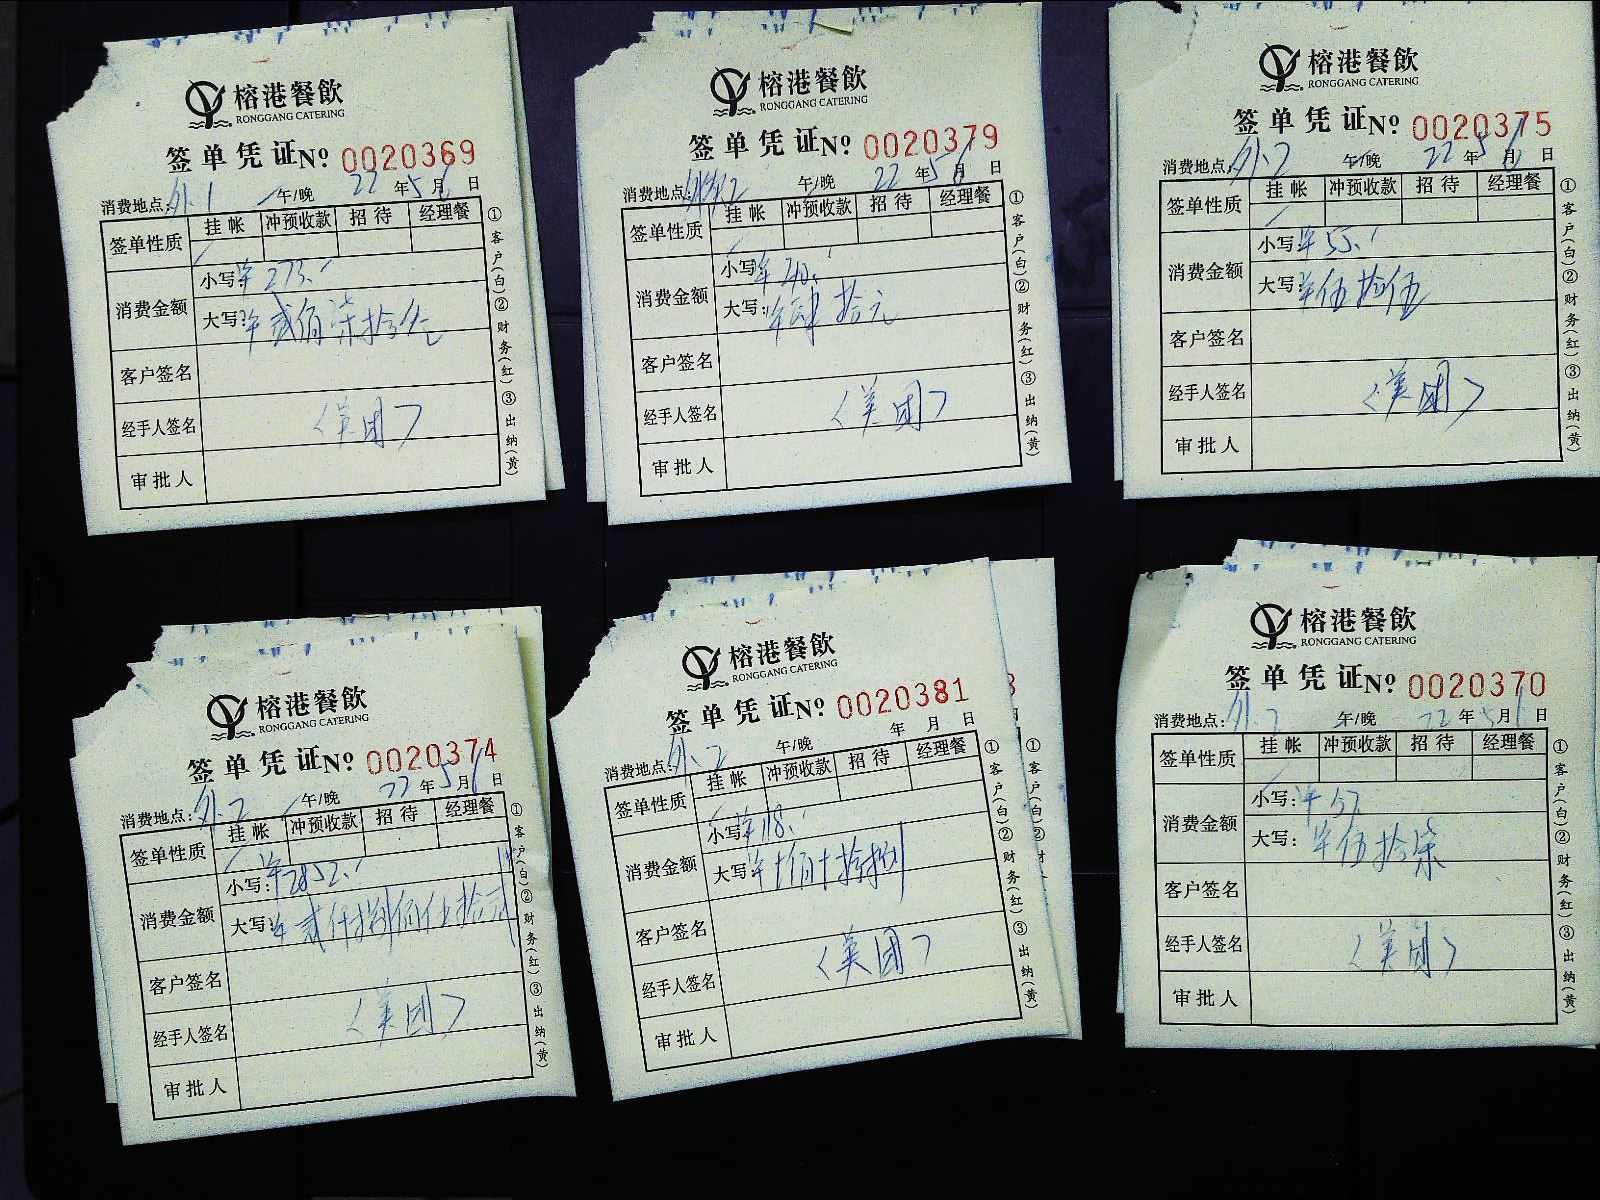 榕港餐飲
RONGGANG CATERING
签单凭证№ 0020369
消费地点: 外.1 午/晚 22 年 5 月 日
签单性质 挂帐 冲预收款 招待 经理餐
消费金额 小写: ¥273.
大写: ¥贰佰柒拾
客户签名
经手人签名 〈美团〉
审批人
①客户(白)②财务(红)③出纳(黄)
榕港餐飲
RONGGANG CATERING
签单凭证№ 0020379
消费地点: 外 2 午/晚 22 年 5 月 日
签单性质 挂帐 冲预收款 招待 经理餐
消费金额 小写: ¥40.
大写: ¥肆拾元
客户签名
经手人签名 〈美团〉
审批人
①客户(白)②财务(红)③出纳(黄)
榕港餐飲
RONGGANG CATERING
签单凭证№ 0020375
消费地点: 外.2 午/晚 22 年 5 月 日
签单性质 挂帐 冲预收款 招待 经理餐
消费金额 小写: ¥55.
大写: ¥伍拾伍
客户签名
经手人签名 〈美团〉
审批人
①客户(白)②财务(红)③出纳(黄)
榕港餐飲
RONGGANG CATERING
签单凭证№ 0020374
消费地点: 外.2 午/晚 22 年 5 月 日
签单性质 挂帐 冲预收款 招待 经理餐
消费金额 小写: ¥2852.
大写: ¥贰仟捌佰伍拾贰
客户签名
经手人签名 〈美团〉
审批人
①客户(白)②财务(红)③出纳(黄)
榕港餐飲
RONGGANG CATERING
签单凭证№ 0020381
消费地点: 外.2 午/晚 年 月 日
签单性质 挂帐 冲预收款 招待 经理餐
消费金额 小写: ¥118.
大写: ¥十佰十拾捌
客户签名
经手人签名 〈美团〉
审批人
①客户(白)②财务(红)③出纳(黄)
榕港餐飲
RONGGANG CATERING
签单凭证№ 0020370
消费地点: 外.2 午/晚 22 年 5 月 日
签单性质 挂帐 冲预收款 招待 经理餐
消费金额 小写: ¥57
大写: ¥伍拾柒
客户签名
经手人签名 〈美团〉
审批人
①客户(白)②财务(红)③出纳(黄)